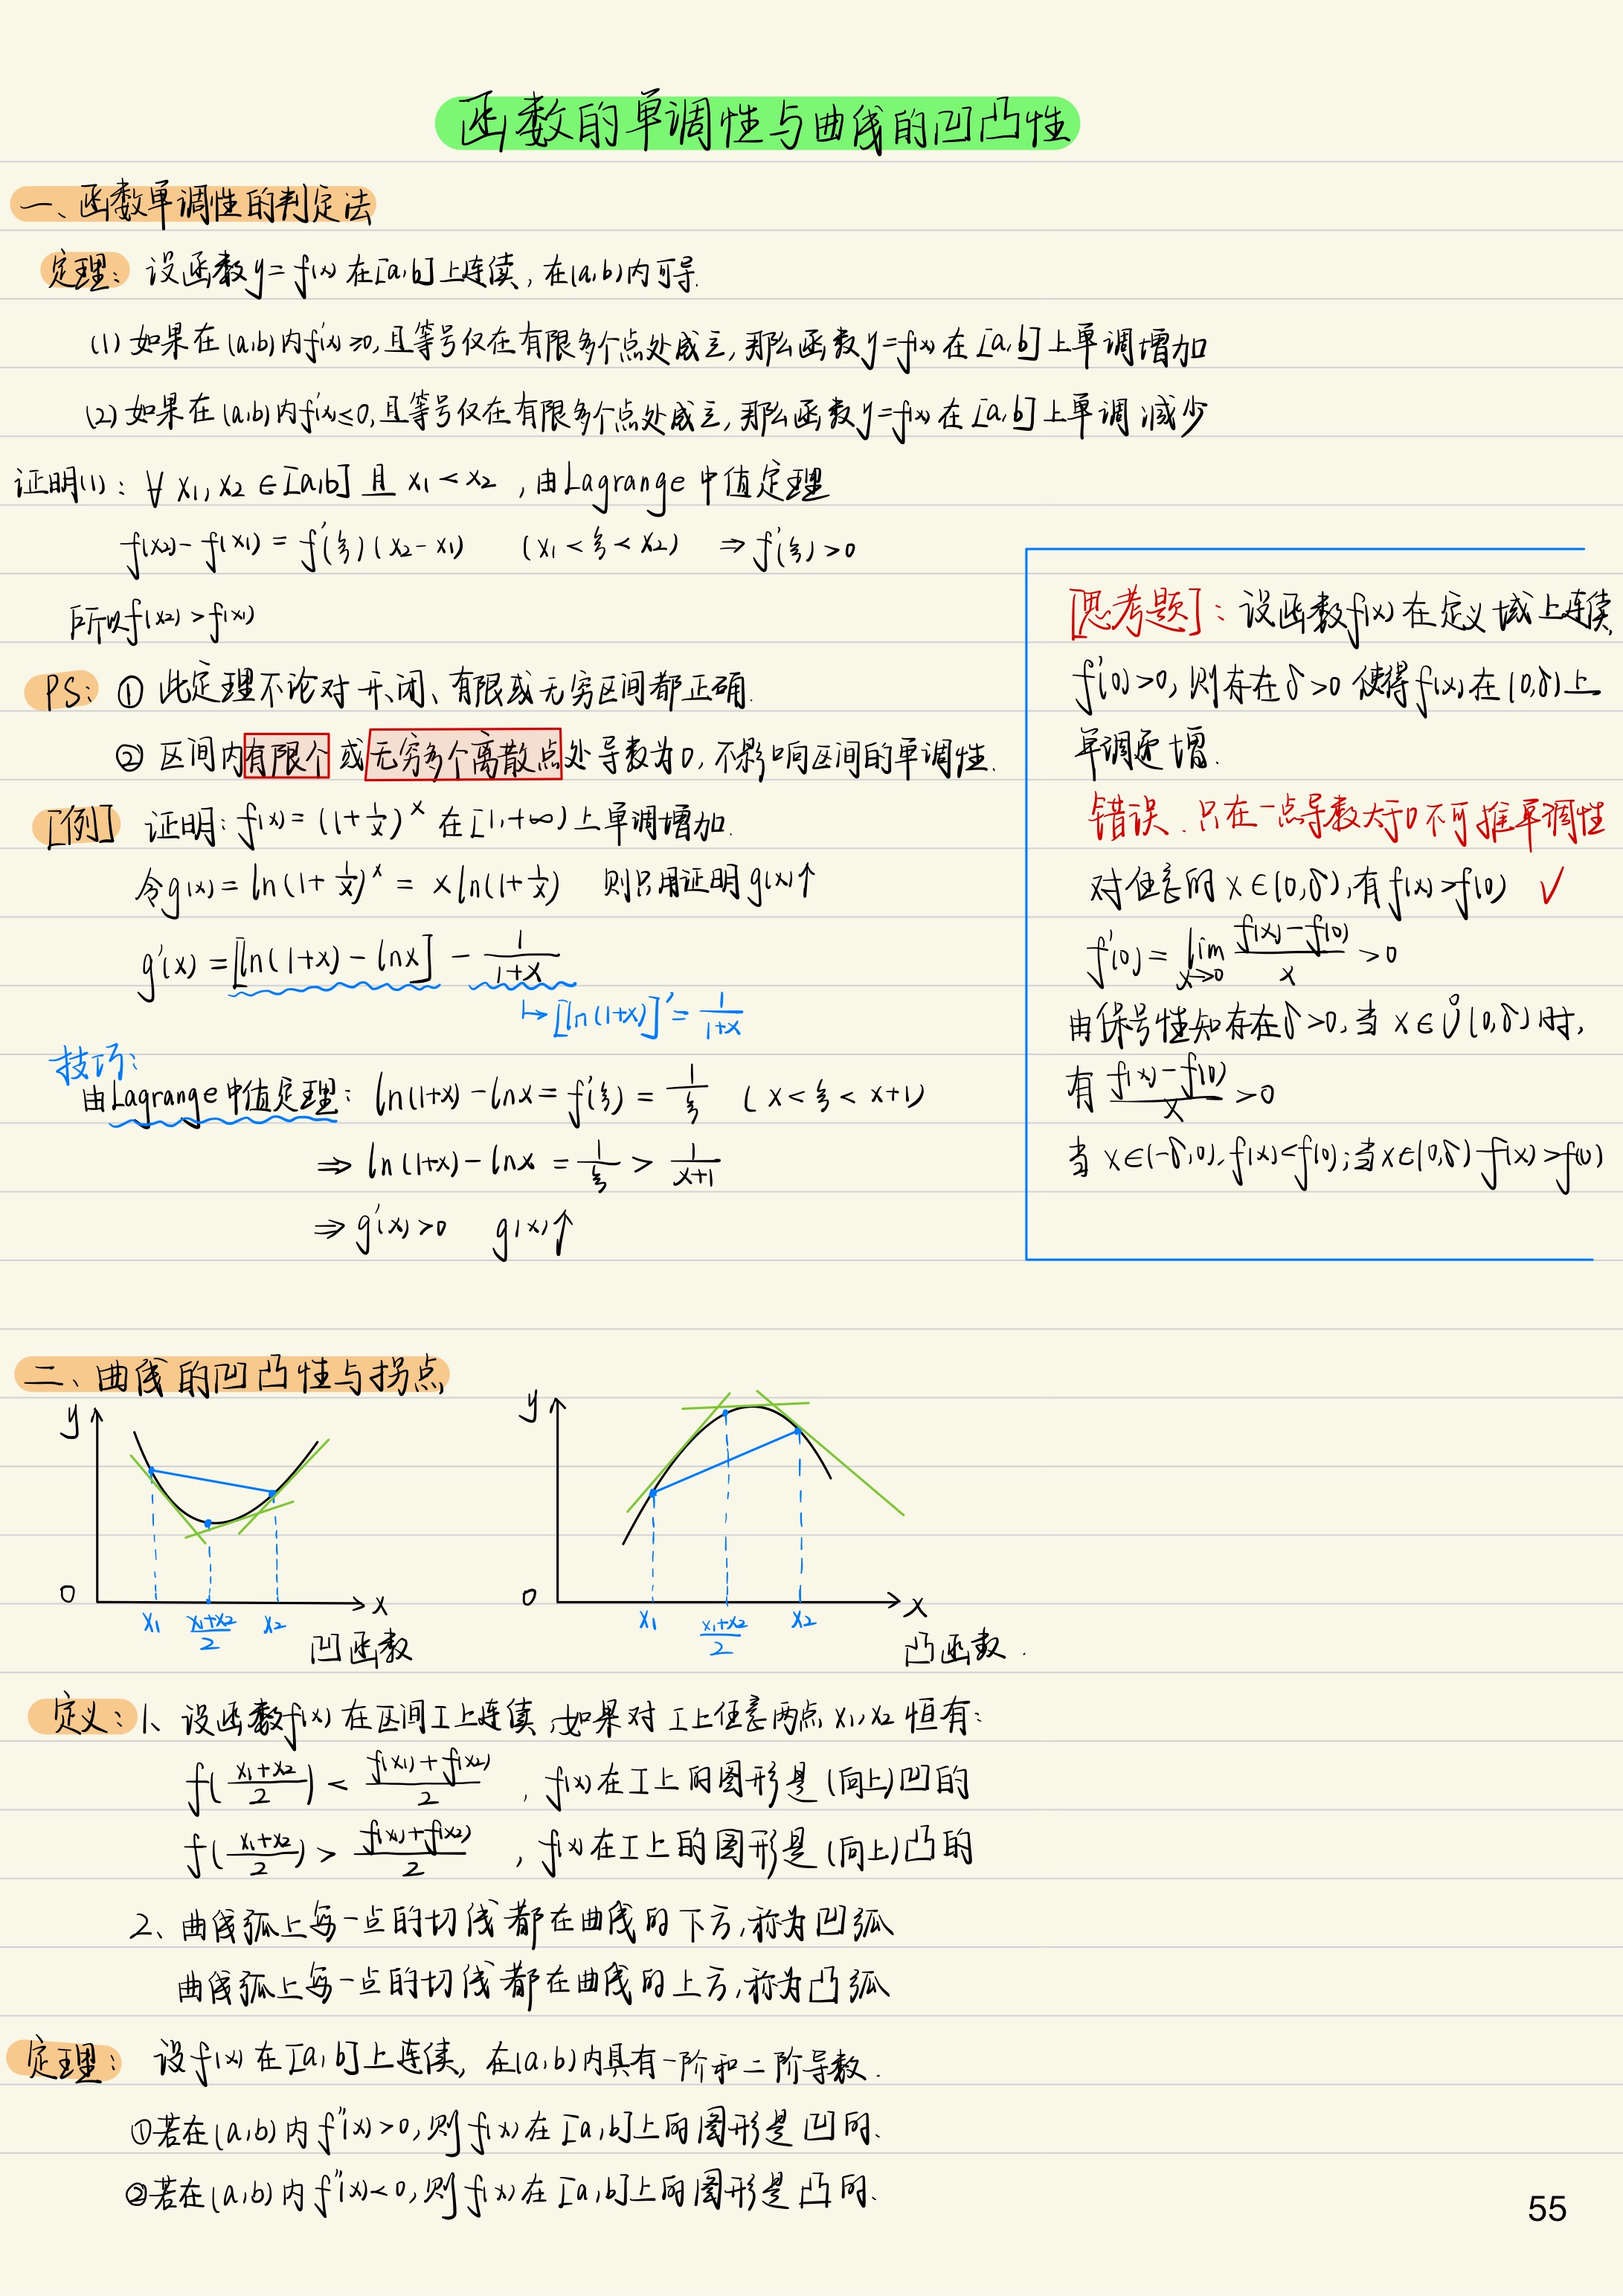 函数的单调性与曲线的凹凸性
一、函数单调性的判定法
定理：设函数y=f(x)在[a,b]上连续，在(a,b)内可导.
(1) 如果在(a,b)内f'(x)≥0，且等号仅在有限多个点处成立，那么函数y=f(x)在[a,b]上单调增加
(2) 如果在(a,b)内f'(x)≤0，且等号仅在有限多个点处成立，那么函数y=f(x)在[a,b]上单调减少
证明(1)：∀ x₁,x₂∈[a,b] 且 x₁<x₂，由Lagrange中值定理
f(x₂)-f(x₁)=f'(ξ)(x₂-x₁) (x₁<ξ<x₂) ⇒f'(ξ)>0
所以f(x₂)>f(x₁)
PS：① 此定理不论对开、闭、有限或无穷区间都正确.
② 区间内有限个或无穷多个离散点处导数为0，不影响区间的单调性.
[例] 证明：f(x)=(1+1/x)^x 在[1,+∞)上单调增加.
令g(x)=ln(1+1/x)^x = xln(1+1/x) 则只用证明g(x)↑
g'(x)=[ln(1+x)-lnx] - 1/(1+x)
↦[ln(1+x)]'=1/(1+x)
技巧：
由Lagrange中值定理：ln(1+x)-lnx=f'(ξ)=1/ξ (x<ξ<x+1)
⇒ ln(1+x)-lnx=1/ξ > 1/(x+1)
⇒ g'(x)>0 g(x)↑
[思考题]：设函数f(x)在定义域上连续,
f'(0)>0，则存在δ>0 使得f(x)在(0,δ)上
单调递增.
错误.只在一点导数大于0不可推单调性
对任意的x∈(0,δ)，有f(x)>f(0) ✓
f'(0)=lim x→0 (f(x)-f(0))/x >0
由保号性知存在δ>0，当x∈Ů(0,δ)时，
有 (f(x)-f(0))/x >0
当 x∈(-δ,0)，f(x)<f(0)；当x∈(0,δ) f(x)>f(0)
二、曲线的凹凸性与拐点
y
0
x₁ (x₁+x₂)/2 x₂
x
凹函数
y
0
x₁ (x₁+x₂)/2 x₂
x
凸函数.
定义：1、设函数f(x)在区间I上连续，如果对I上任意两点x₁,x₂恒有：
f((x₁+x₂)/2) < (f(x₁)+f(x₂))/2 ，f(x)在I上的图形是(向上)凹的
f((x₁+x₂)/2) > (f(x₁)+f(x₂))/2 ，f(x)在I上的图形是(向上)凸的
2、曲线弧上每一点的切线都在曲线的下方，称为凹弧
曲线弧上每一点的切线都在曲线的上方，称为凸弧
定理：设f(x)在[a,b]上连续，在(a,b)内具有一阶和二阶导数.
①若在(a,b)内f''(x)>0，则f(x)在[a,b]上的图形是凹的、
②若在(a,b)内f''(x)<0，则f(x)在[a,b]上的图形是凸的、
55